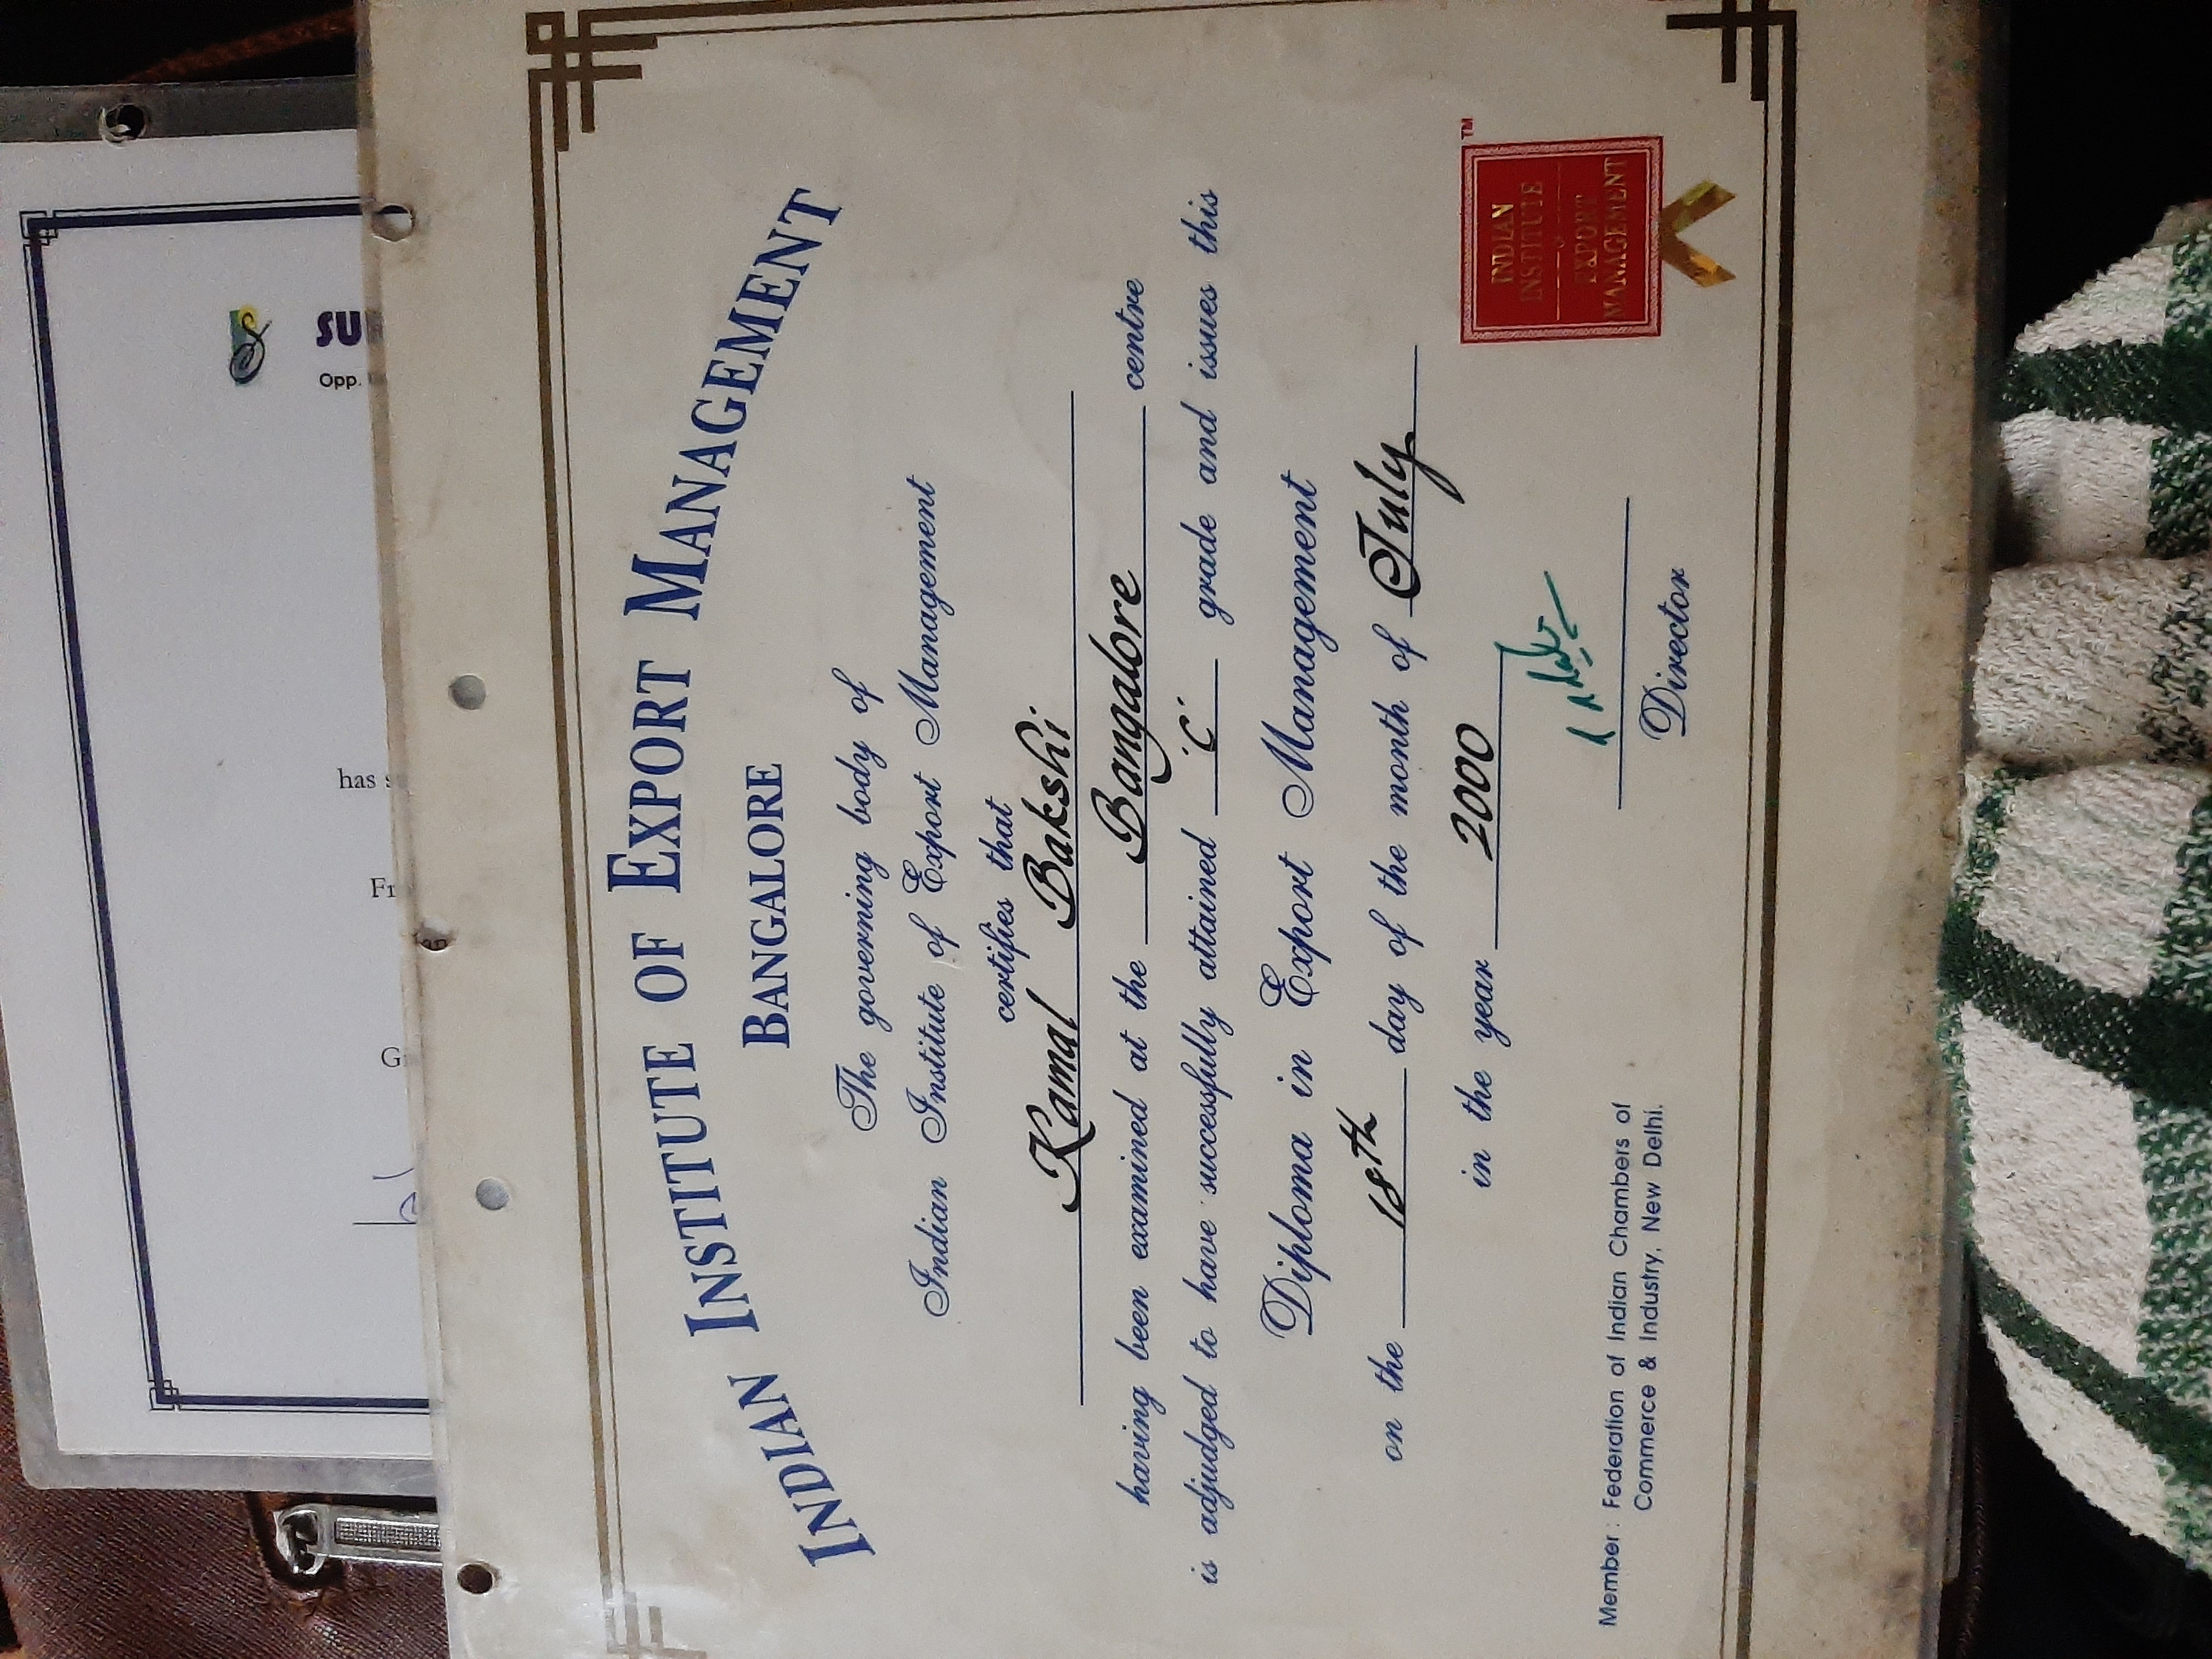 INDIAN INSTITUTE OF EXPORT MANAGEMENT
BANGALORE
The governing body of
Indian Institute of Export Management
certifies that
Kamal Bakshi
having been examined at the Bangalore centre
is adjudged to have successfully attained 'C' grade and issues this
Diploma in Export Management
on the 18th day of the month of July
in the year 2000
Director
Member : Federation of Indian Chambers of
Commerce & Industry, New Delhi.
TM
INDIAN
INSTITUTE
OF
EXPORT
MANAGEMENT
Opp.
has